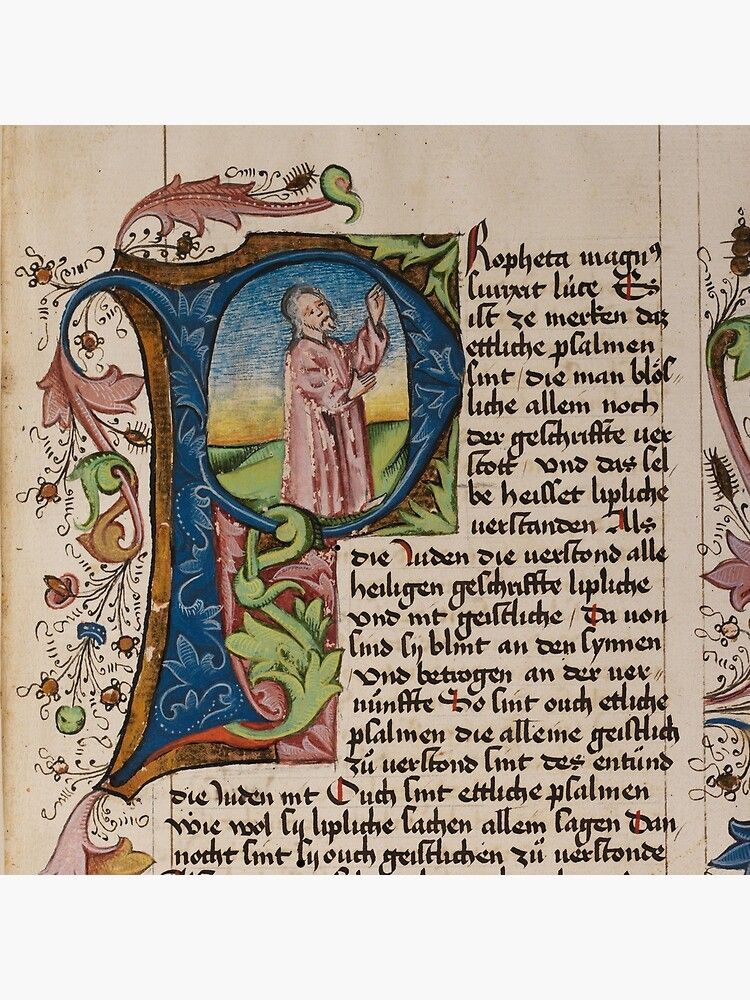 Propheta magnꝰ
surrexit luce Es
ist ze merken das
ettliche psalmen
sint / die man blos-
liche allein noch
der geschriffte ver
stott / vnd das sel
be heisset lipliche
verstanden Als
die Juden die verstond alle
heiligen geschriffte lipliche
vnd nit geistliche / Da von
sind sy blint an den synnen
vnd betrogen an der ver-
nunffte So sint ouch etliche
psalmen die alleine geistlich
zů verstond sint des entůnd
die Juden nit Ouch sint ettliche psalmen
Wie wol sy lipliche sachen allein sagen Dan/
nocht sint sy ouch geistlichen zů verstonde